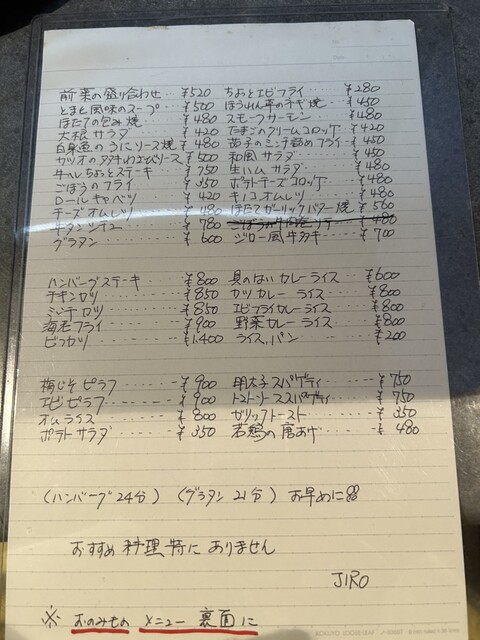 前菜の盛り合わせ ¥520 ちょとエビフライ ¥280
とまと風味のスープ ¥500 ほうれん草のチーズ焼 ¥450
ほたての包み焼 ¥480 スモークサーモン ¥480
大根サラダ ¥420 たまごのクリームコロッケ ¥420
白身魚のうにソース焼 ¥480 茄子のミンチ詰めフライ ¥450
カツオのタタキわさビソース ¥500 和風サラダ ¥450
牛ヘレちょとステーキ ¥750 生ハムサラダ ¥480
ごぼうのフライ ¥350 ポテトチーズコロッケ ¥480
ロールキャベツ ¥420 キノコオムレツ ¥480
チーズオムレツ ¥480 ほたてガーリックバター焼 ¥560
牛タンシチュー ¥780 ¥480
グラタン ¥600 ジロー風牛タタキ ¥700
ハンバーグステーキ ¥800 具のないカレーライス ¥600
チキンカツ ¥850 カツカレーライス ¥800
ミンチカツ ¥850 エビフライカレーライス ¥800
海老フライ ¥900 野菜カレーライス ¥800
ビフカツ ¥1,400 ライス、パン ¥200
梅じそピラフ ¥900 明太子スパゲティ ¥750
エビピラフ ¥900 トマトソーススパゲティ ¥750
オムライス ¥800 ガーリックトースト ¥350
ポテトサラダ ¥350 若鶏の唐あげ ¥480
(ハンバーグ24分) (グラタン21分) お早めに
おすすめ料理特にありません
JIRO
※ おのみもの メニュー 裏面に